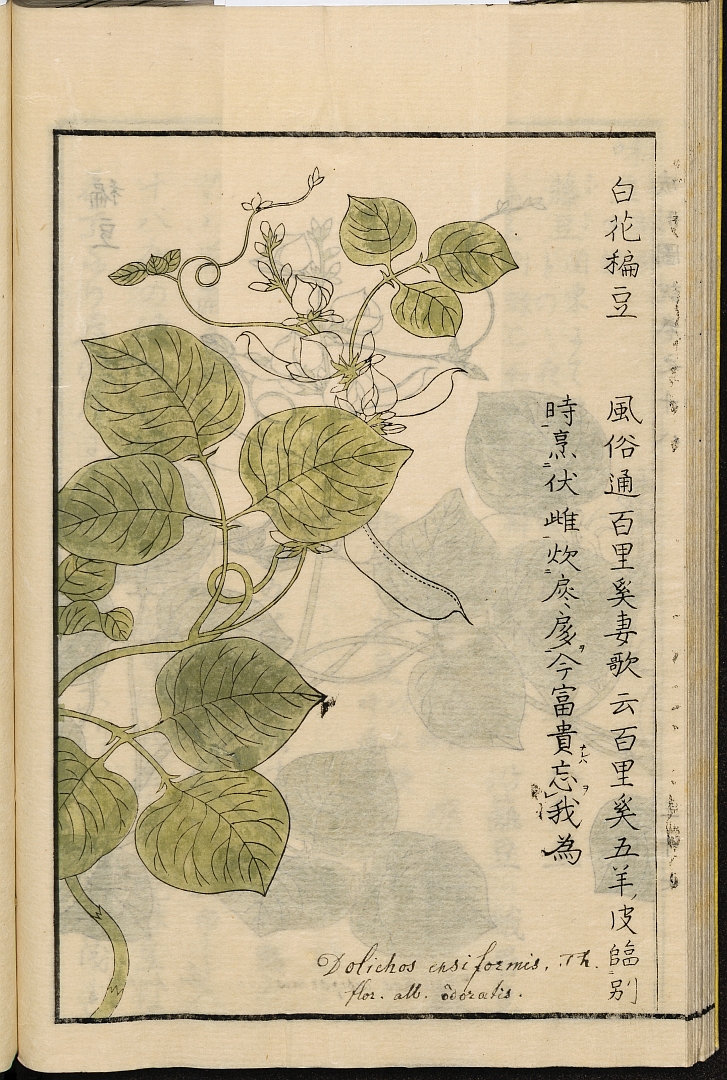 白花稨豆
風俗通百里奚妻歌云百里奚五羊皮臨别
時烹伏雌炊扊扅今富貴忘我為
Dolichos ensiformis, Th.
flor. alb. odoratis.